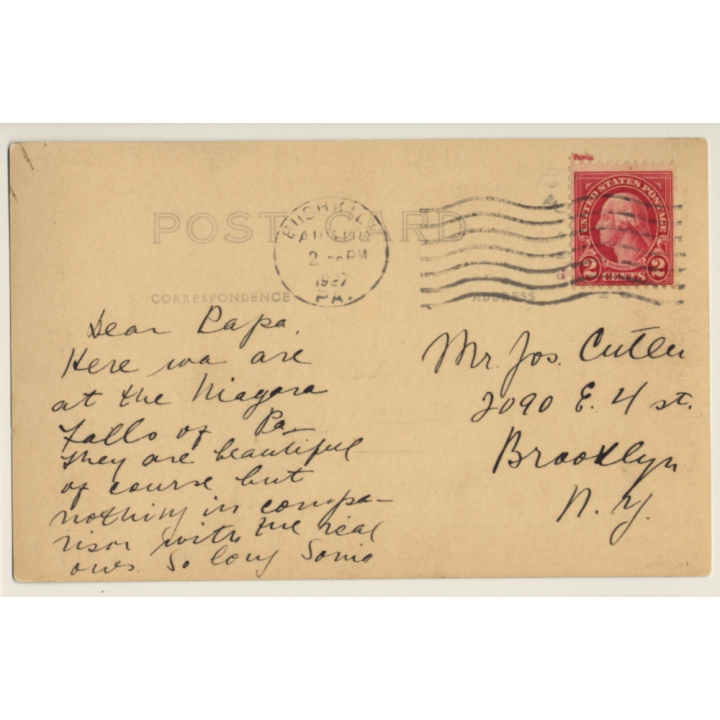 POST CARD
BUSHKILL
AUG
2 PM
1927
PA.
UNITED STATES POSTAGE
2 CENTS 2
CORRESPONDENCE
ADDRESS
Dear Papa,
Here wa are
at the Niagara
Falls of Pa—
They are beautiful
of course but
nothing in compa-
rison with the real
ones. So long
Mr. Jos. Cutler
2090 E. 4 st.
Brooklyn
N. Y.